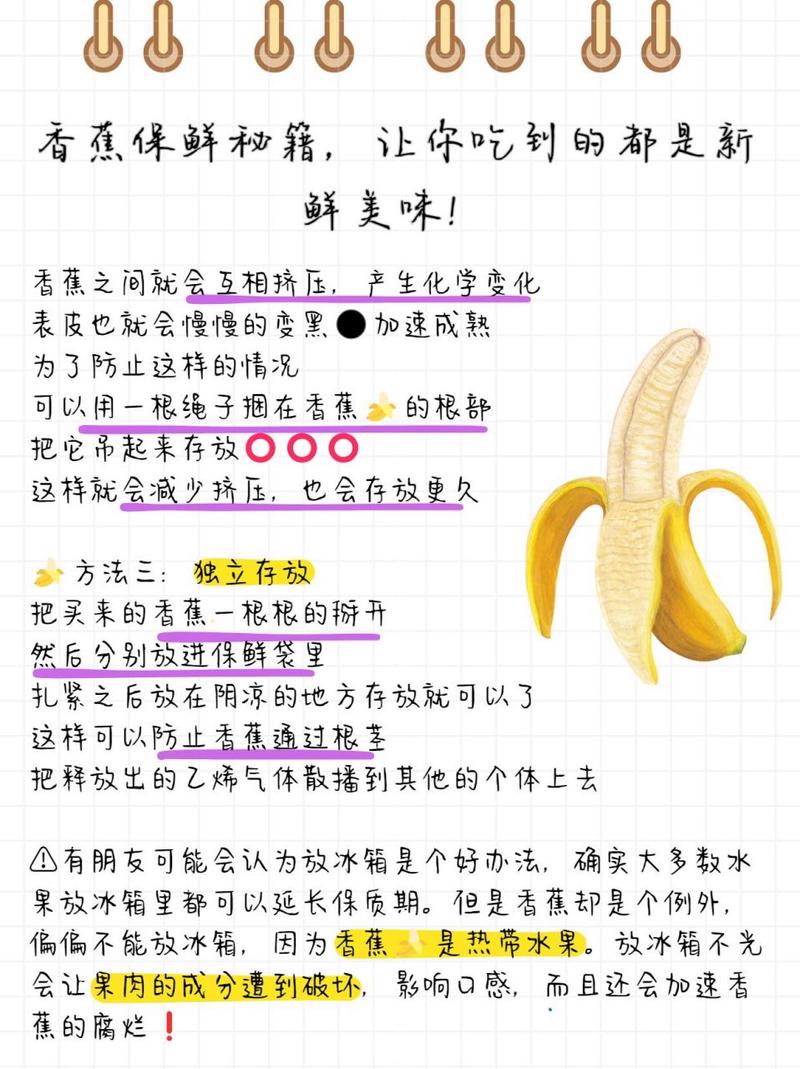 香蕉保鲜秘籍，让你吃到的都是新
鲜美味！
香蕉之间就会互相挤压，产生化学变化
表皮也就会慢慢的变黑⚫加速成熟
为了防止这样的情况
可以用一根绳子捆在香蕉🍌的根部
把它吊起来存放⭕⭕⭕
这样就会减少挤压，也会存放更久
🍌方法三：独立存放
把买来的香蕉一根根的掰开
然后分别放进保鲜袋里
扎紧之后放在阴凉的地方存放就可以了
这样可以防止香蕉通过根茎
把释放出的乙烯气体散播到其他的个体上去
⚠有朋友可能会认为放冰箱是个好办法，确实大多数水
果放冰箱里都可以延长保质期。但是香蕉却是个例外，
偏偏不能放冰箱，因为香蕉🍌是热带水果。放冰箱不光
会让果肉的成分遭到破坏，影响口感，而且还会加速香
蕉的腐烂❗